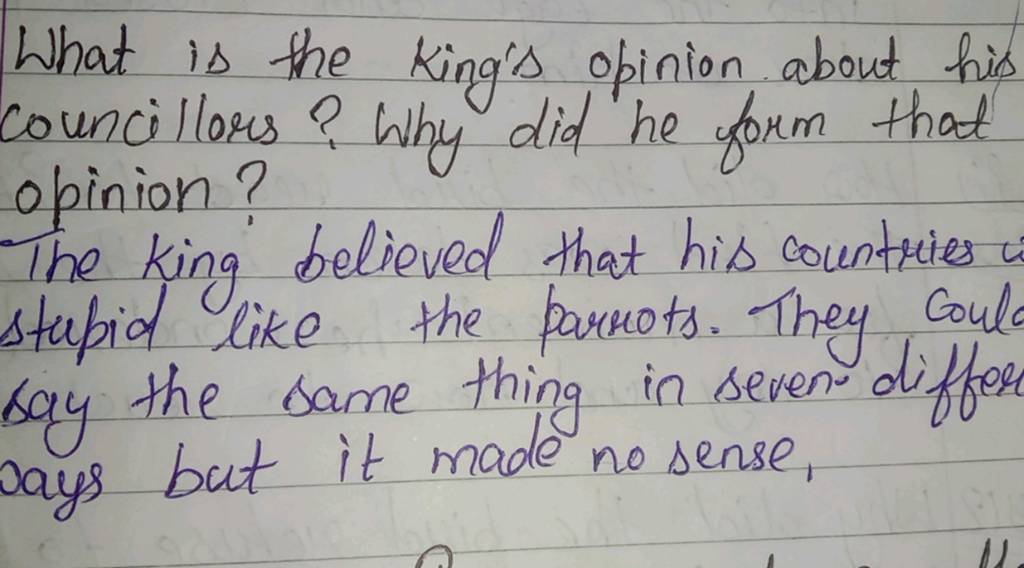 What is the King's opinion about his
councillors? Why did he form that
opinion?
The king believed that his countries
stupid like the parrots. They Could
say the same thing in seven differ
ways but it made no sense,